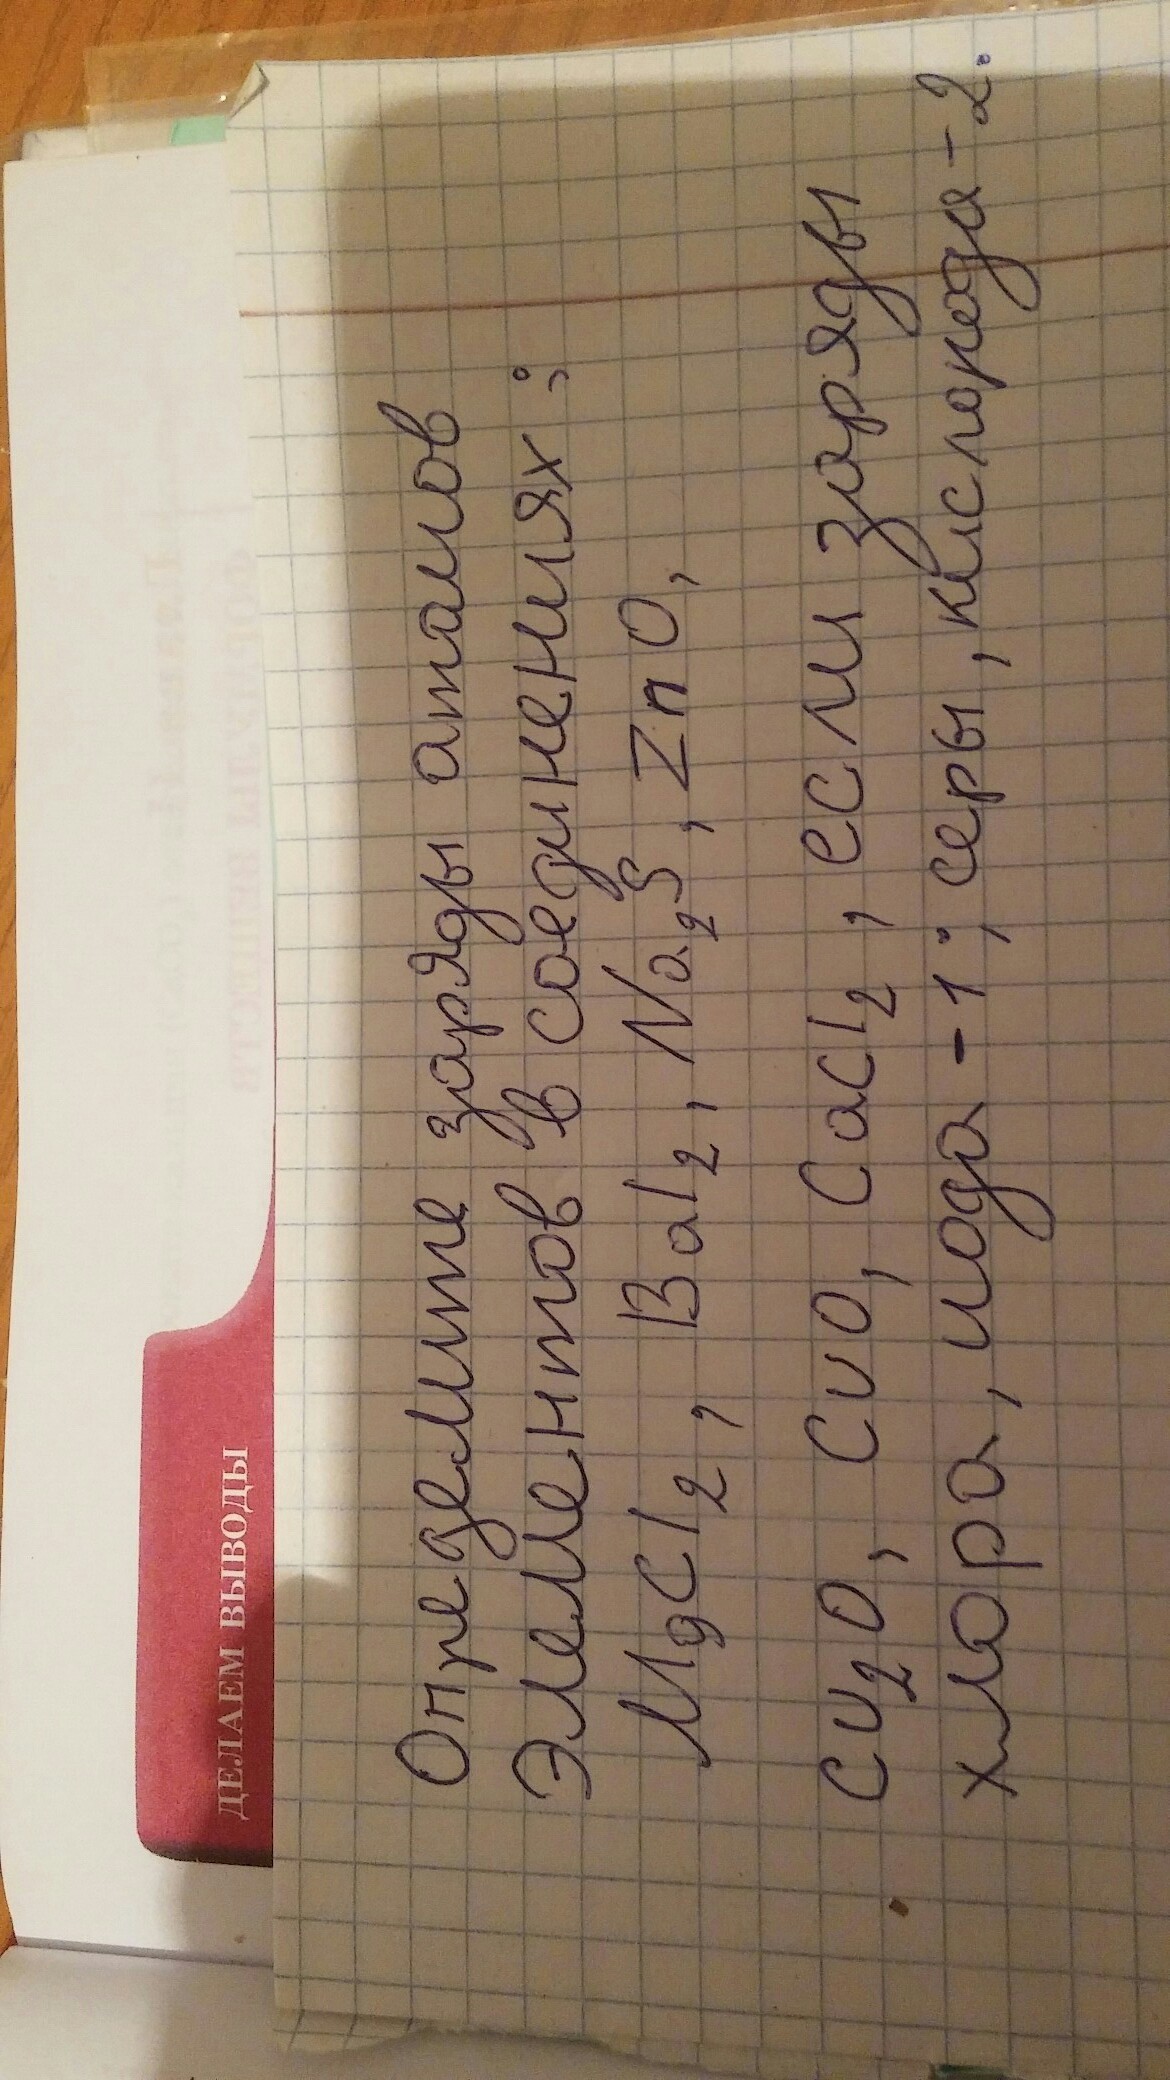 ДЕЛАЕМ ВЫВОДЫ
Определите заряды атомов
элементов в соединениях:
MgCl₂, BaI₂, Na₂S, ZnO,
Cu₂O, CuO, CaCl₂, если заряды
хлора, иода -1; серы, кислорода -2.